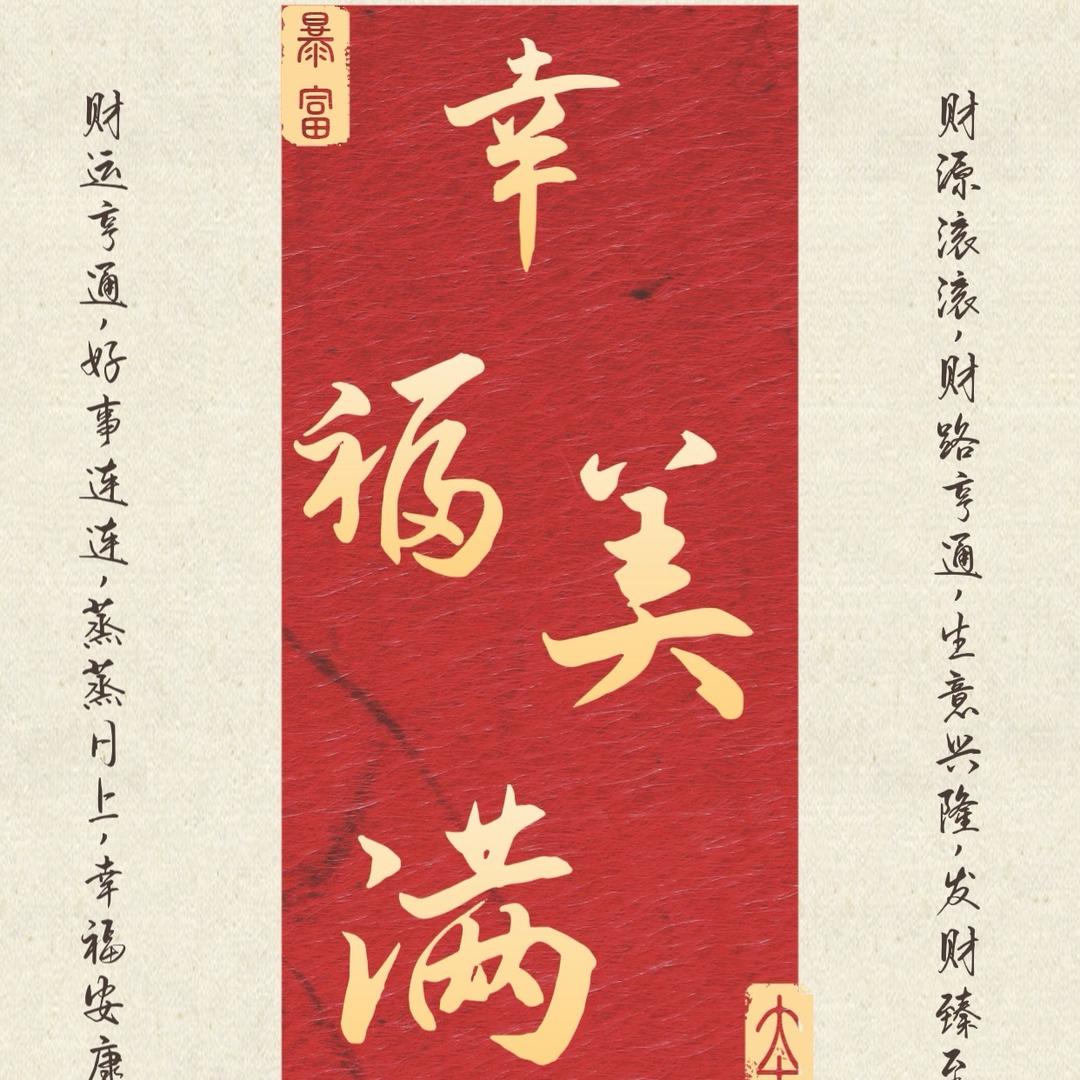 财源滚滚，财路亨通，生意兴隆，发财臻至
暴富
幸福美满
财运亨通，好事连连，蒸蒸日上，幸福安康